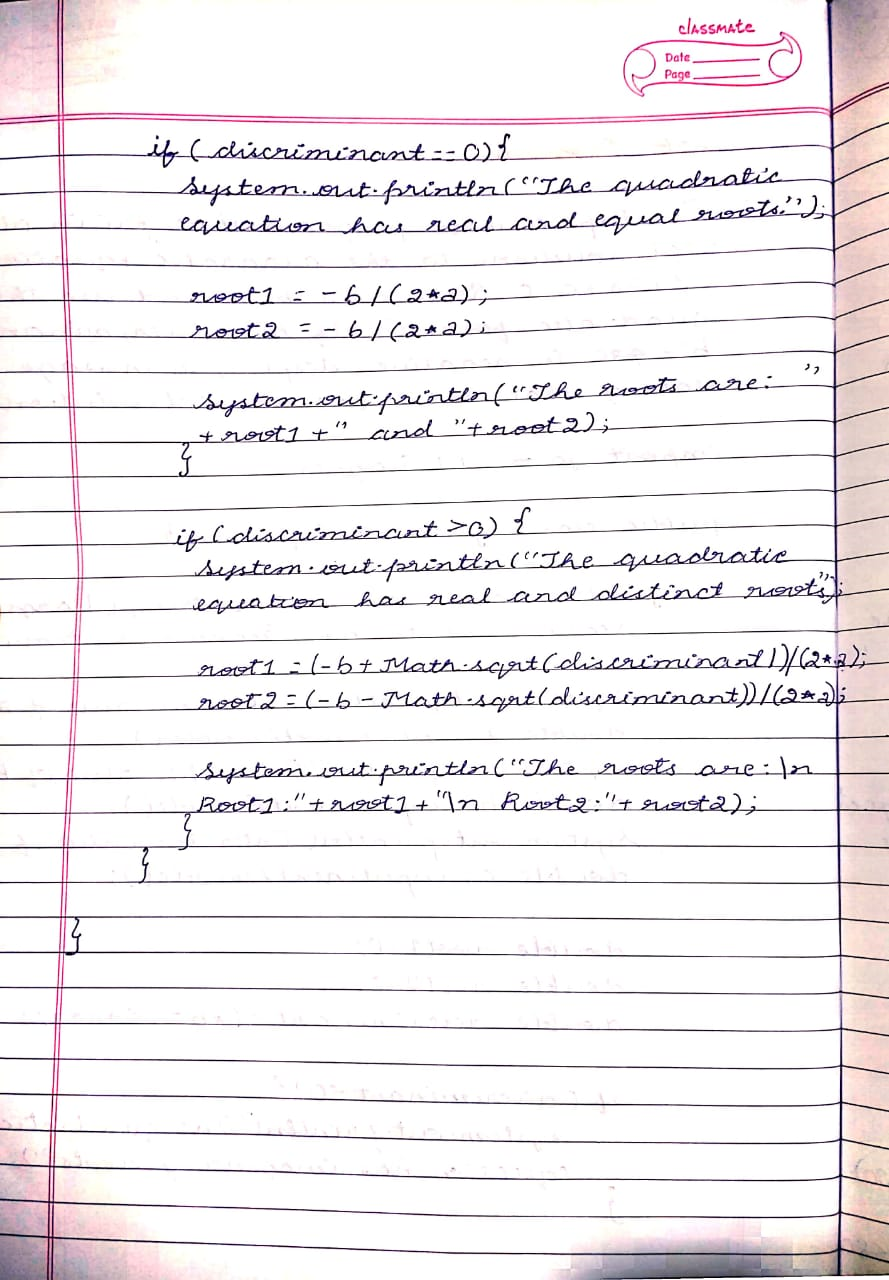 classmate
Date
Page
if (discriminant == 0){
System.out.println("The quadratic
equation has real and equal roots.");
root1 = -b/(2*a);
root2 = -b/(2*a);
System.out.println("The roots are: "
+root1+" and "+root2);
}
if (discriminant >0) {
System.out.println("The quadratic
equation has real and distinct roots");
root1 =(-b+Math.sqrt(discriminant))/(2*a);
root2=(-b-Math.sqrt(discriminant))/(2*a);
System.out.println("The roots are:\n
Root1:"+root1+"\n Root2:"+root2);
}
}
}